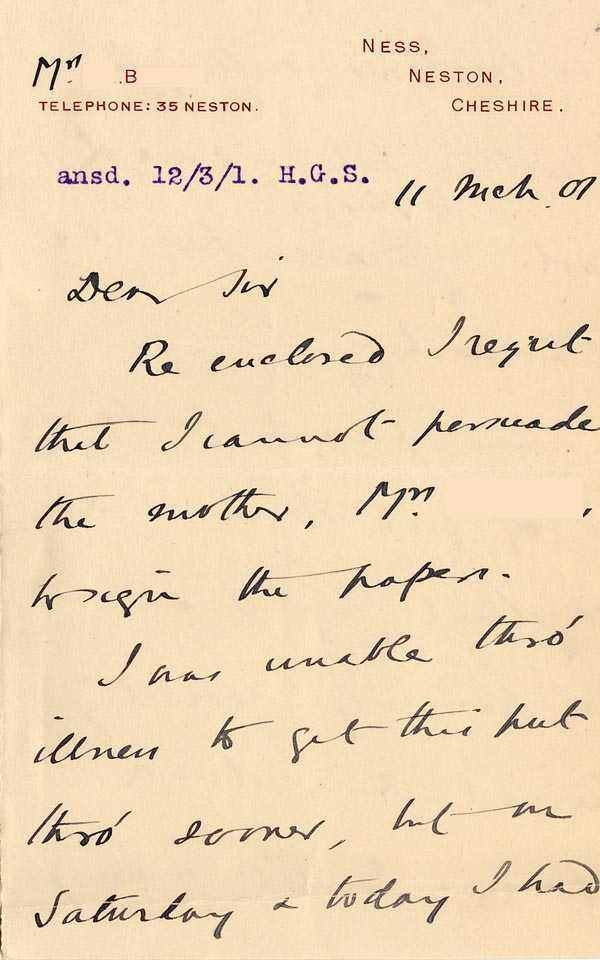 NESS,
Mrs .B NESTON,
TELEPHONE: 35 NESTON. CHESHIRE.
ansd. 12/3/1. H.G.S.
11 Mch 01
Dear Sir
Re enclosed I regret
that I cannot persuade
the mother, Mrs ,
to sign the papers.
I was unable thro'
illness to get this put
thro' sooner, but on
Saturday & today I had